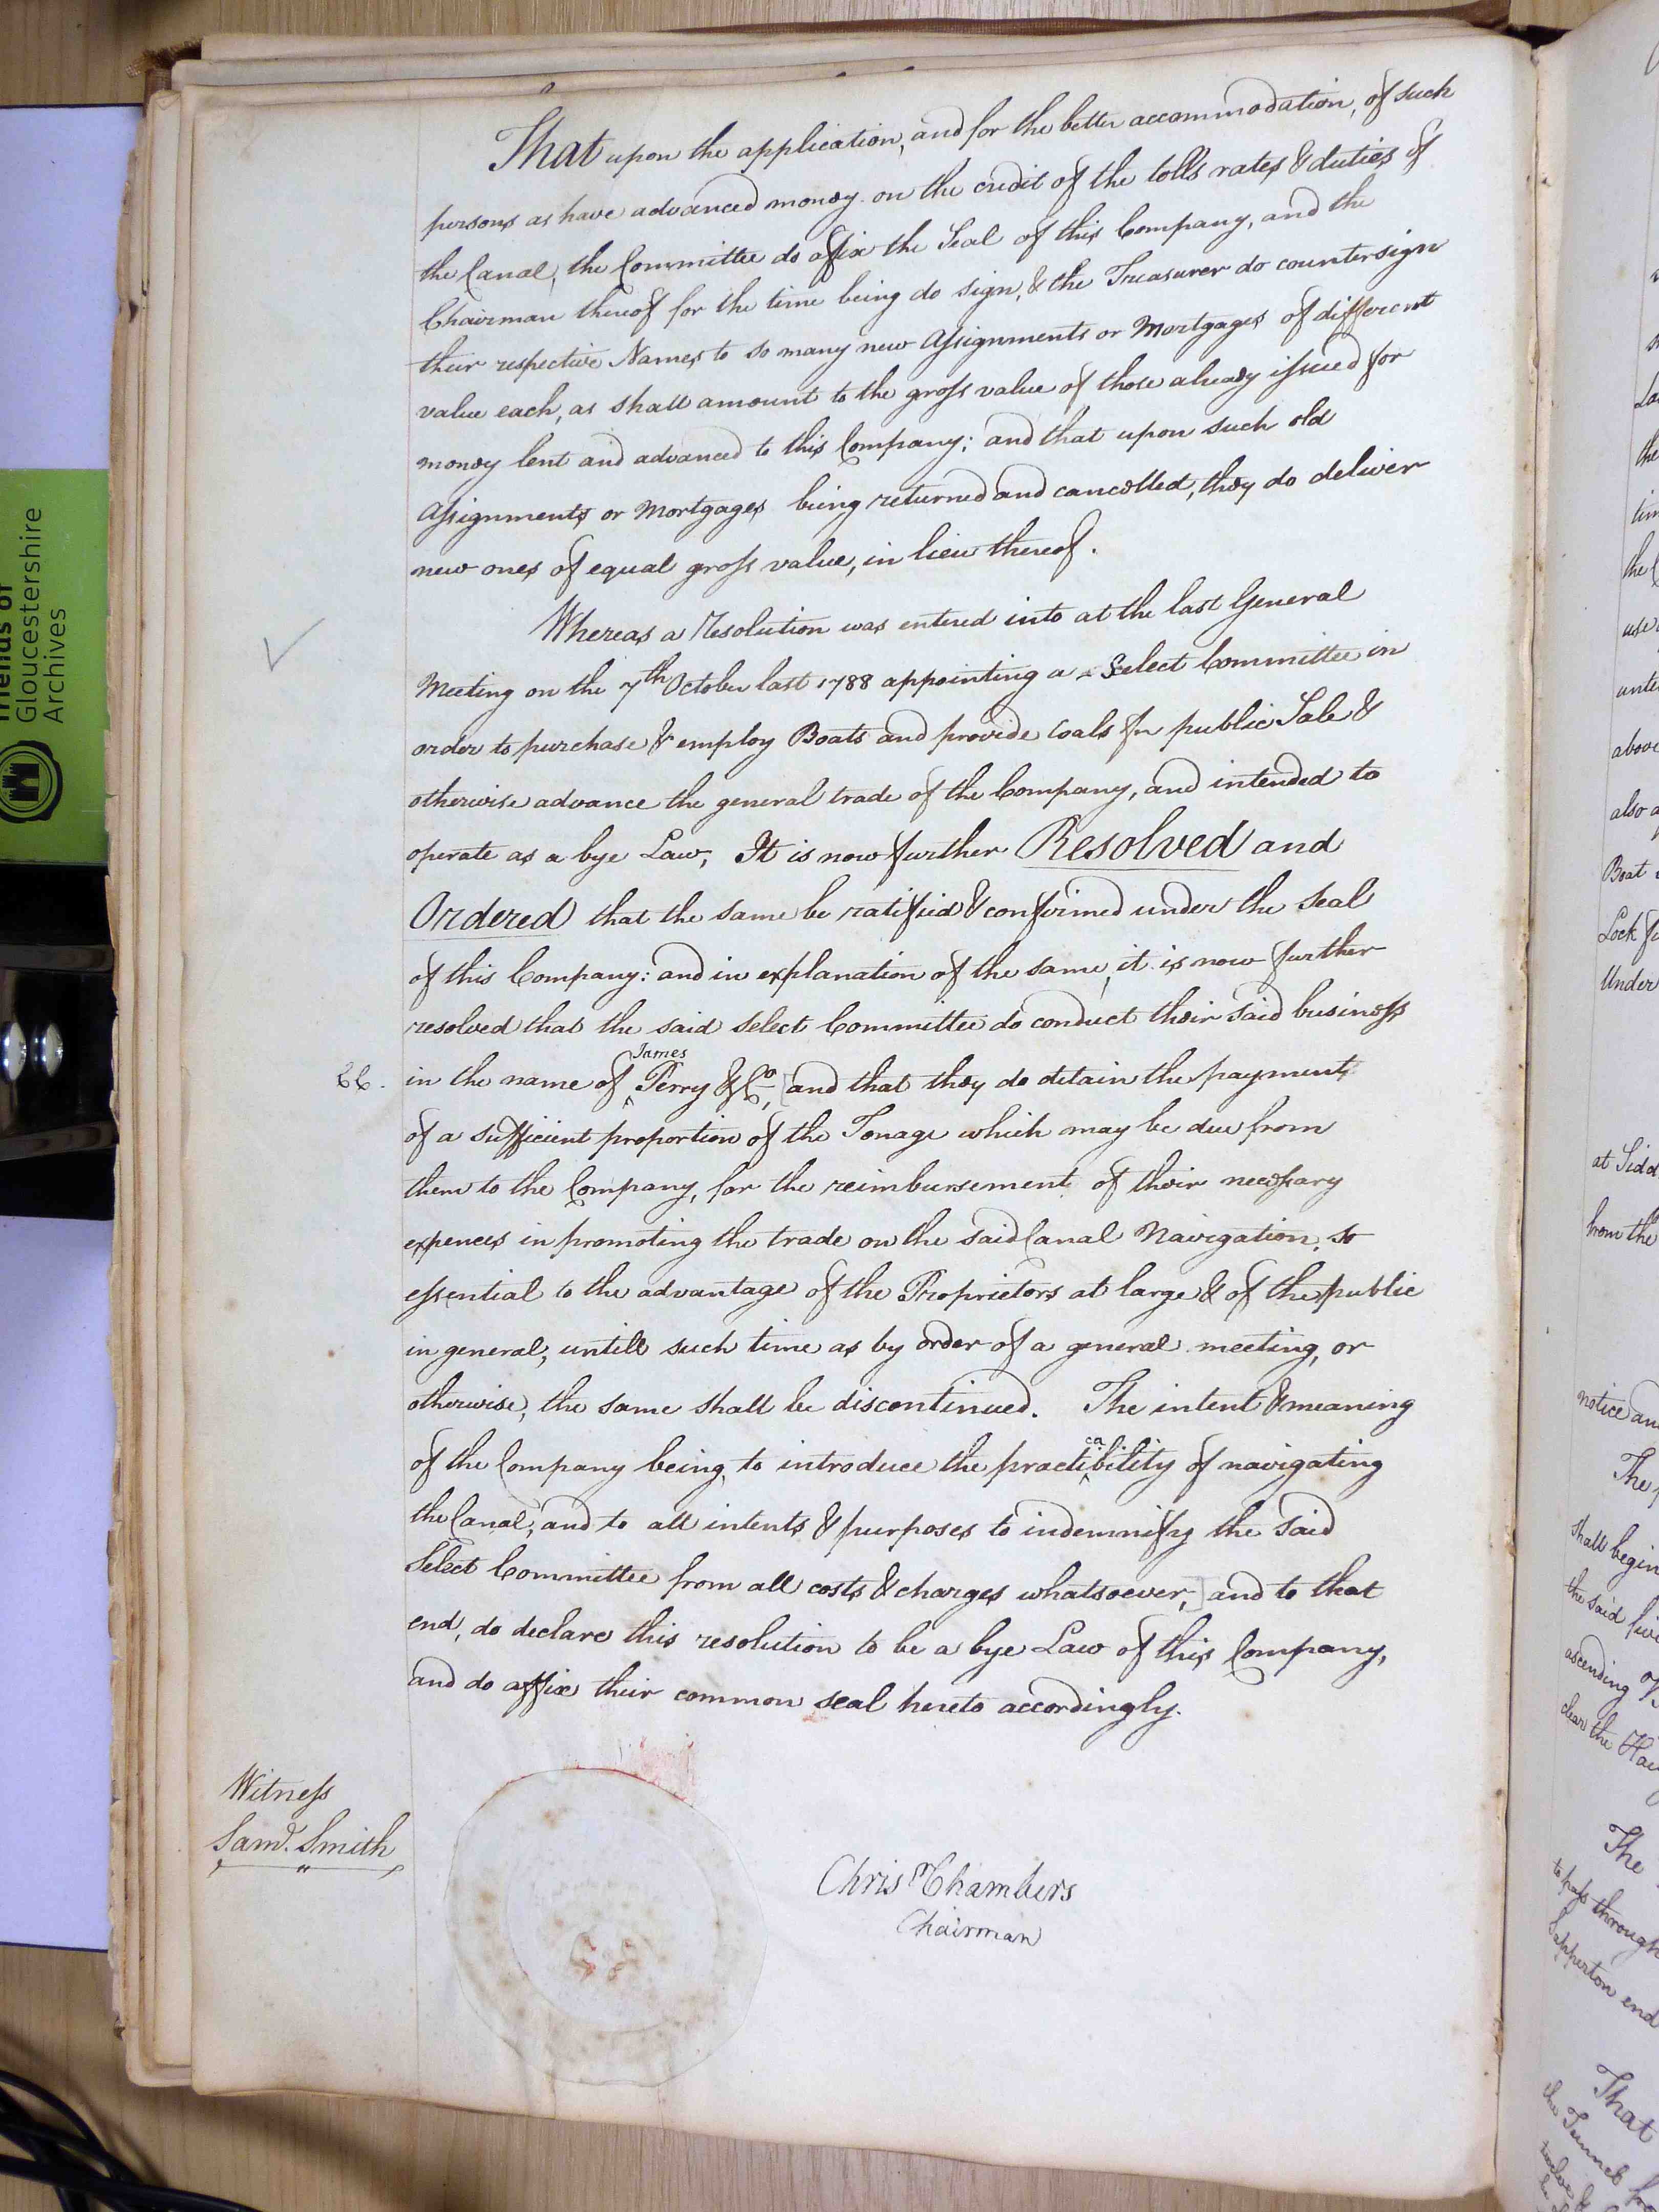 That upon the application, and for the better accommodation, of such
persons as have advanced money on the credit of the tolls rates & duties of
the Canal, the Committee do affix the Seal of this Company, and the
Chairman thereof for the time being do sign, & the Treasurer do countersign
their respective Names to so many new Assignments or Mortgages of different
value each, as shall amount to the gross value of those already issued for
money lent and advanced to this Company; and that upon such old
Assignments or Mortgages being returned and cancelled, they do deliver
new ones of equal gross value, in lieu thereof.
Whereas a Resolution was entered into at the last General
Meeting on the 7th October last 1788 appointing a Select Committee in
order to purchase & employ Boats and provide Coals for public Sale &
otherwise advance the general trade of the Company, and intended to
operate as a bye Law; It is now further Resolved and
Ordered that the same be ratified & confirmed under the Seal
of this Company: and in explanation of the same, it is now further
resolved that the said select Committee do conduct their said business
in the name of James Perry & Co, [and that they do detain the payment
of a sufficient proportion of the Tonage which may be due from
them to the Company, for the reimbursement of their necessary
expences in promoting the trade on the said Canal Navigation, so
essential to the advantage of the Proprietors at large & of the public
in general, untill such time as by order of a general meeting, or
otherwise, the same shall be discontinued. The intent & meaning
of the Company being, to introduce the practicability of navigating
the Canal, and to all intents & purposes to indemnify the said
Select Committee from all costs & charges whatsoever,] and to that
end, do declare this resolution to be a bye Law of this Company,
and do affix their common seal hereto accordingly.
Witness
Saml. Smith
Chrisr Chambers
Chairman
Friends of
Gloucestershire
Archives
at Sidd
from the
notice an
The
shall begin
the said
ascending
clear the
The
to pass through
Sapperton end
That
the Tunnel
above
also a
Boat
Lock
Under